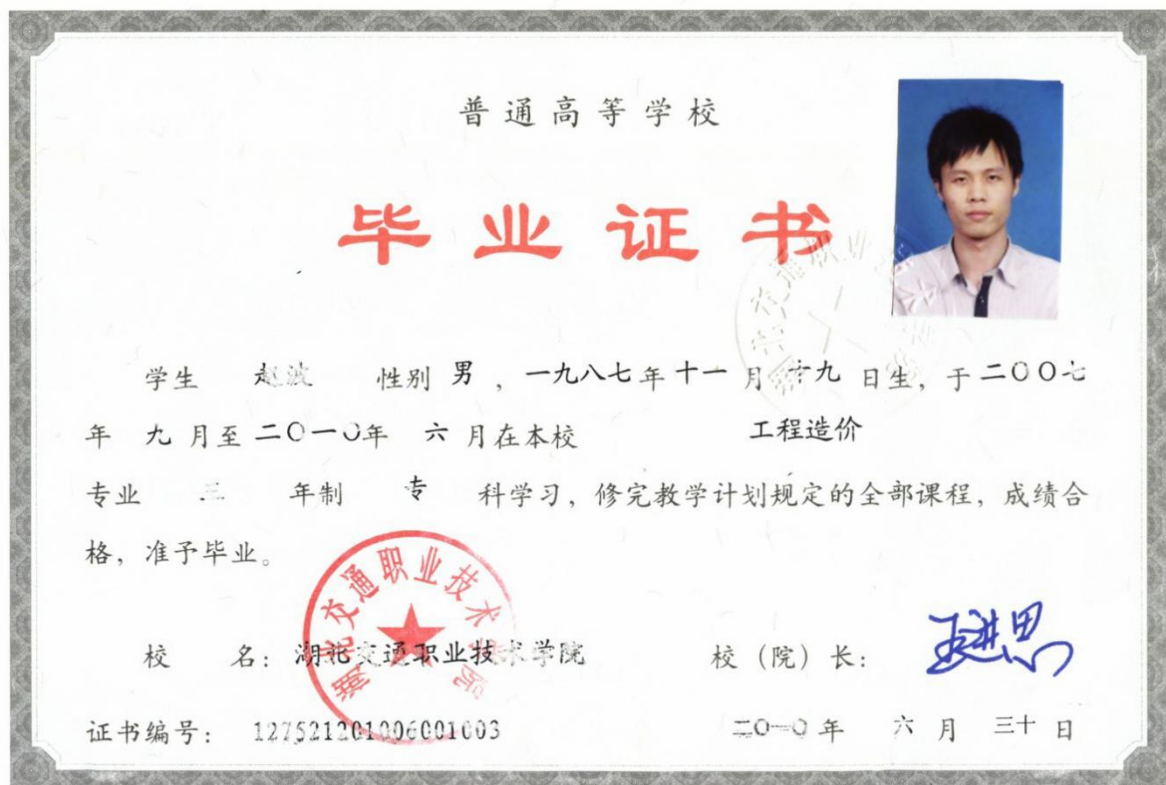 普通高等学校
毕业证书
学生 赵波 性别 男，一九八七年十一月十九日生，于二〇〇七
年九月至二〇一〇年六月在本校 工程造价
专业 三 年制 专 科学习，修完教学计划规定的全部课程，成绩合
格，准予毕业。
湖北交通职业技术学院
校 名：湖北交通职业技术学院 校（院）长：
证书编号：127521201006001003 二〇一〇年 六月 三十日